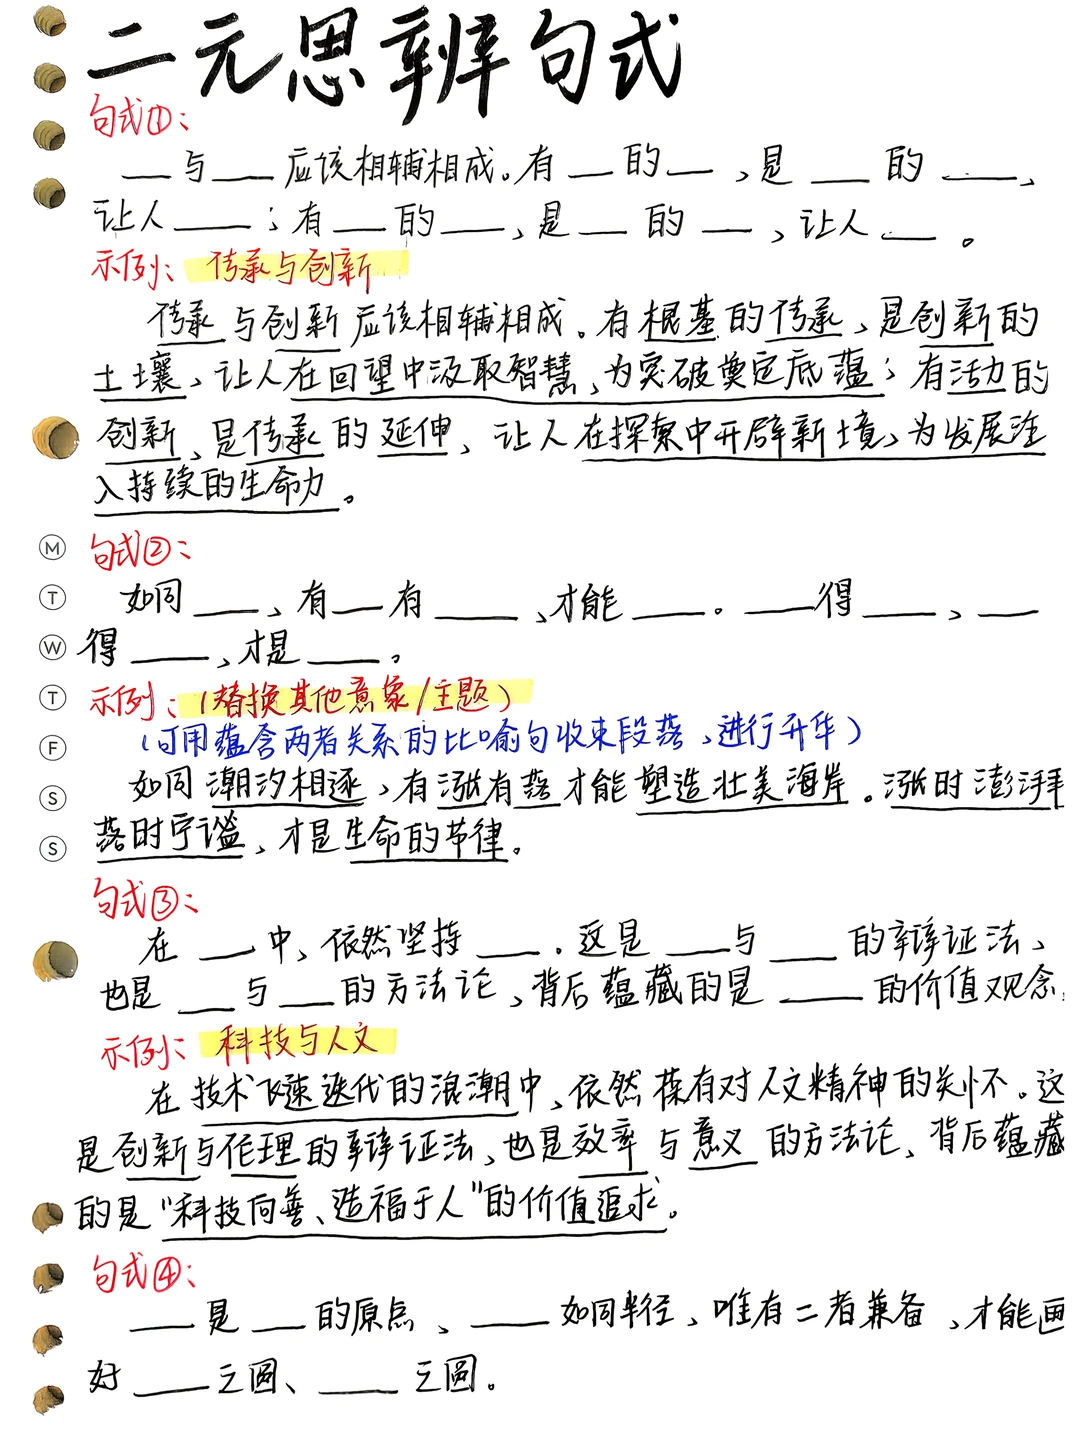 二元思辨句式
句式①:
___与___应该相辅相成。有___的___,是___的___,
让人___;有___的___,是___的___,让人___。
示例:传承与创新
传承与创新应该相辅相成。有根基的传承,是创新的
土壤,让人在回望中汲取智慧,为突破奠定底蕴;有活力的
创新,是传承的延伸,让人在探索中开辟新境,为发展注
入持续的生命力。
句式②:
如同___,有___有___,才能___。___得___,___
得___,才是___。
示例:(替换其他意象/主题)
(可用蕴含两者关系的比喻句收束段落,进行升华)
如同潮汐相逐,有涨有落才能塑造壮美海岸。涨时澎湃
落时宁谧,才是生命的节律。
句式③:
在___中,依然坚持___.这是___与___的辩证法,
也是___与___的方法论,背后蕴藏的是___的价值观念.
示例:科技与人文
在技术飞速迭代的浪潮中,依然葆有对人文精神的关怀。这
是创新与伦理的辩证法,也是效率与意义的方法论,背后蕴藏
的是“科技向善、造福于人”的价值追求。
句式④:
___是___的原点,___如同半径,唯有二者兼备,才能画
好___之圆、___之圆。
M
T
W
T
F
S
S